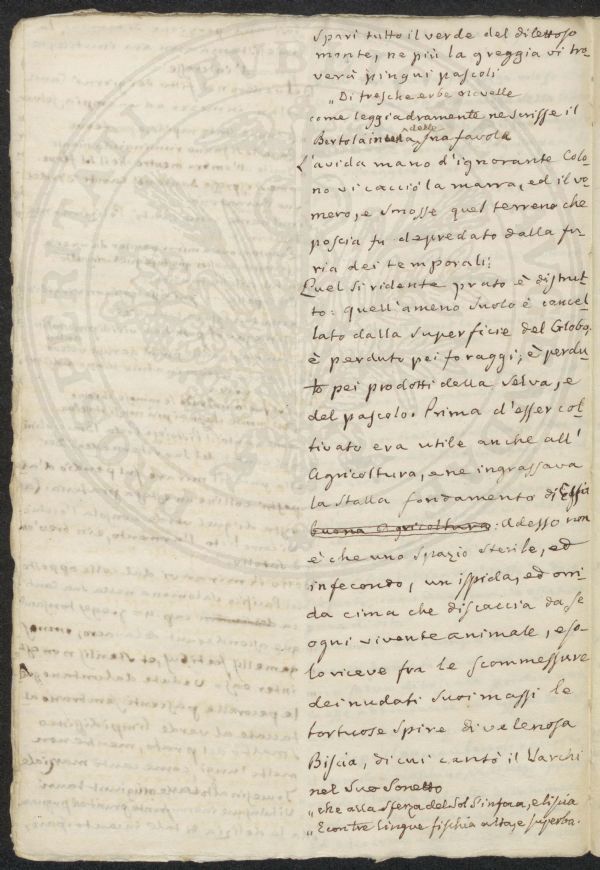 Sparì tutto il verde del dilettoso
monte, ne più la greggia vi tro-
verà pingui pascoli
„Di fresche erbe novelle
come leggiadramente ne scrisse il
Bertola in una delle sua favola
L'avida mano d'ignorante Colo-
no vi cacciò la marra, ed il vo-
mero, e smosse quel terreno che
poscia fu depredato dalla fu-
ria dei temporali;
Quel sì ridente prato è distrut-
to: quell'ameno suolo è cancel-
lato dalla superficie del Globo,
è perduto pei foraggi; è perdu-
to pei prodotti della selva, e
del pascolo. Prima d'esser col-
tivato era utile anche all'
Agricoltura, e ne ingrassava
la stalla fondamento di Essa
buona Agricoltura: Adesso non
è che uno spazio sterile, ed
infecondo, un ispida, ed orri-
da cima che discaccia da se
ogni vivente animale, e so-
lo riceve fra le scommessure
dei nudati suoi massi le
tortuose spire di velenosa
Biscia, di cui cantò il Varchi
nel suo Sonetto
„che alla sferza del Sol s'infoca, e liscia
„E con tre lingue fischia alta, e superba.